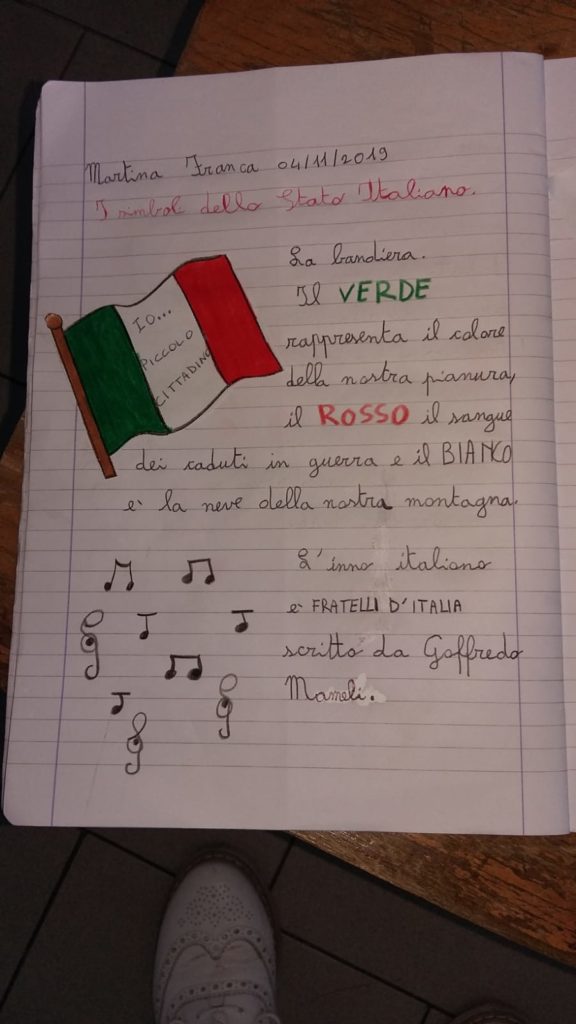 Martina Franca 04/11/2019
I simboli dello Stato Italiano.
IO...
PICCOLO
CITTADINO
La bandiera.
Il VERDE
rappresenta il colore
della nostra pianura,
il ROSSO il sangue
dei caduti in guerra e il BIANCO
è la neve della nostra montagna.
L'inno italiano
è FRATELLI D'ITALIA
scritto da Goffredo
Mameli.